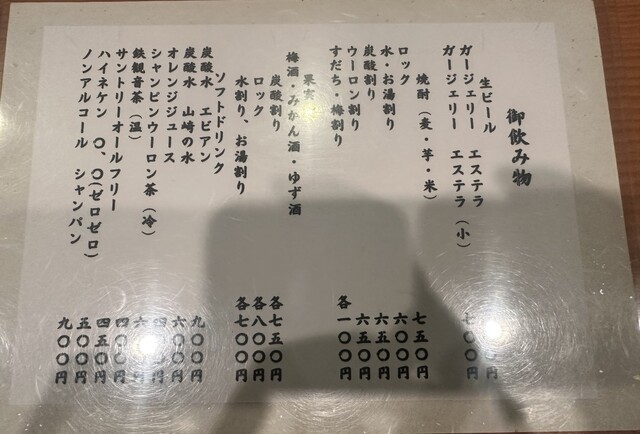 御飲み物
生ビール
ガージェリー エステラ 円
ガージェリー エステラ(小) 七〇〇円
焼酎(麦・芋・米)
ロック 七五〇円
水・お湯割り 六〇〇円
炭酸割り 六五〇円
ウーロン割り 六五〇円
すだち・梅割り 各一〇〇円
果実
梅酒・みかん酒・ゆず酒
炭酸割り 各七五〇円
ロック 各八〇〇円
水割り、お湯割り 各七〇〇円
ソフトドリンク
炭酸水 エビアン 九〇〇円
炭酸水 山崎の水 六〇〇円
オレンジジュース 円
シャンピンウーロン茶(冷) 円
鉄観音茶(温) 円
サントリーオールフリー 四五〇円
ハイネケン 〇、〇(ゼロゼロ) 五〇〇円
ノンアルコール シャンパン 九〇〇円